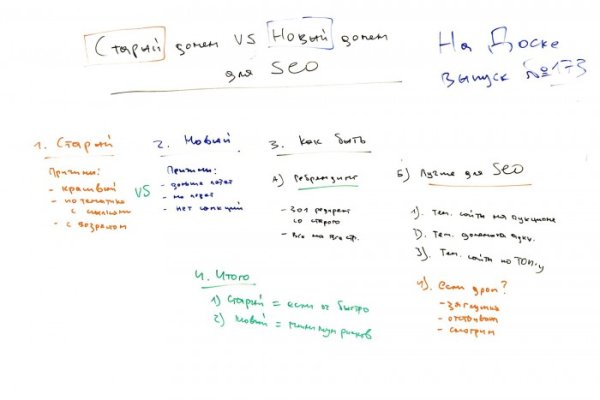 Старый домен VS Новый домен
для SEO
На Доске
выпуск №173
1. Старый
Причины:
- красивый
- по тематике
с ссылками
- с возрастом
VS
2. Новый
Причины:
- дольше
- не
- нет санкций
3. Как быть
А) Ребрендинг
- 301 редирект
со старого
- все на все стр.
Б) Лучше для SEO
1). Тем. сайты на аукционе
2). Тем. домена аукц.
3). Тем. сайты по ТОП-у
4). Если дроп?
- заглушка
- отстоять
- смотрим
4. Итого
1) Старый = если от быстро
2) Новый = минимум рисков